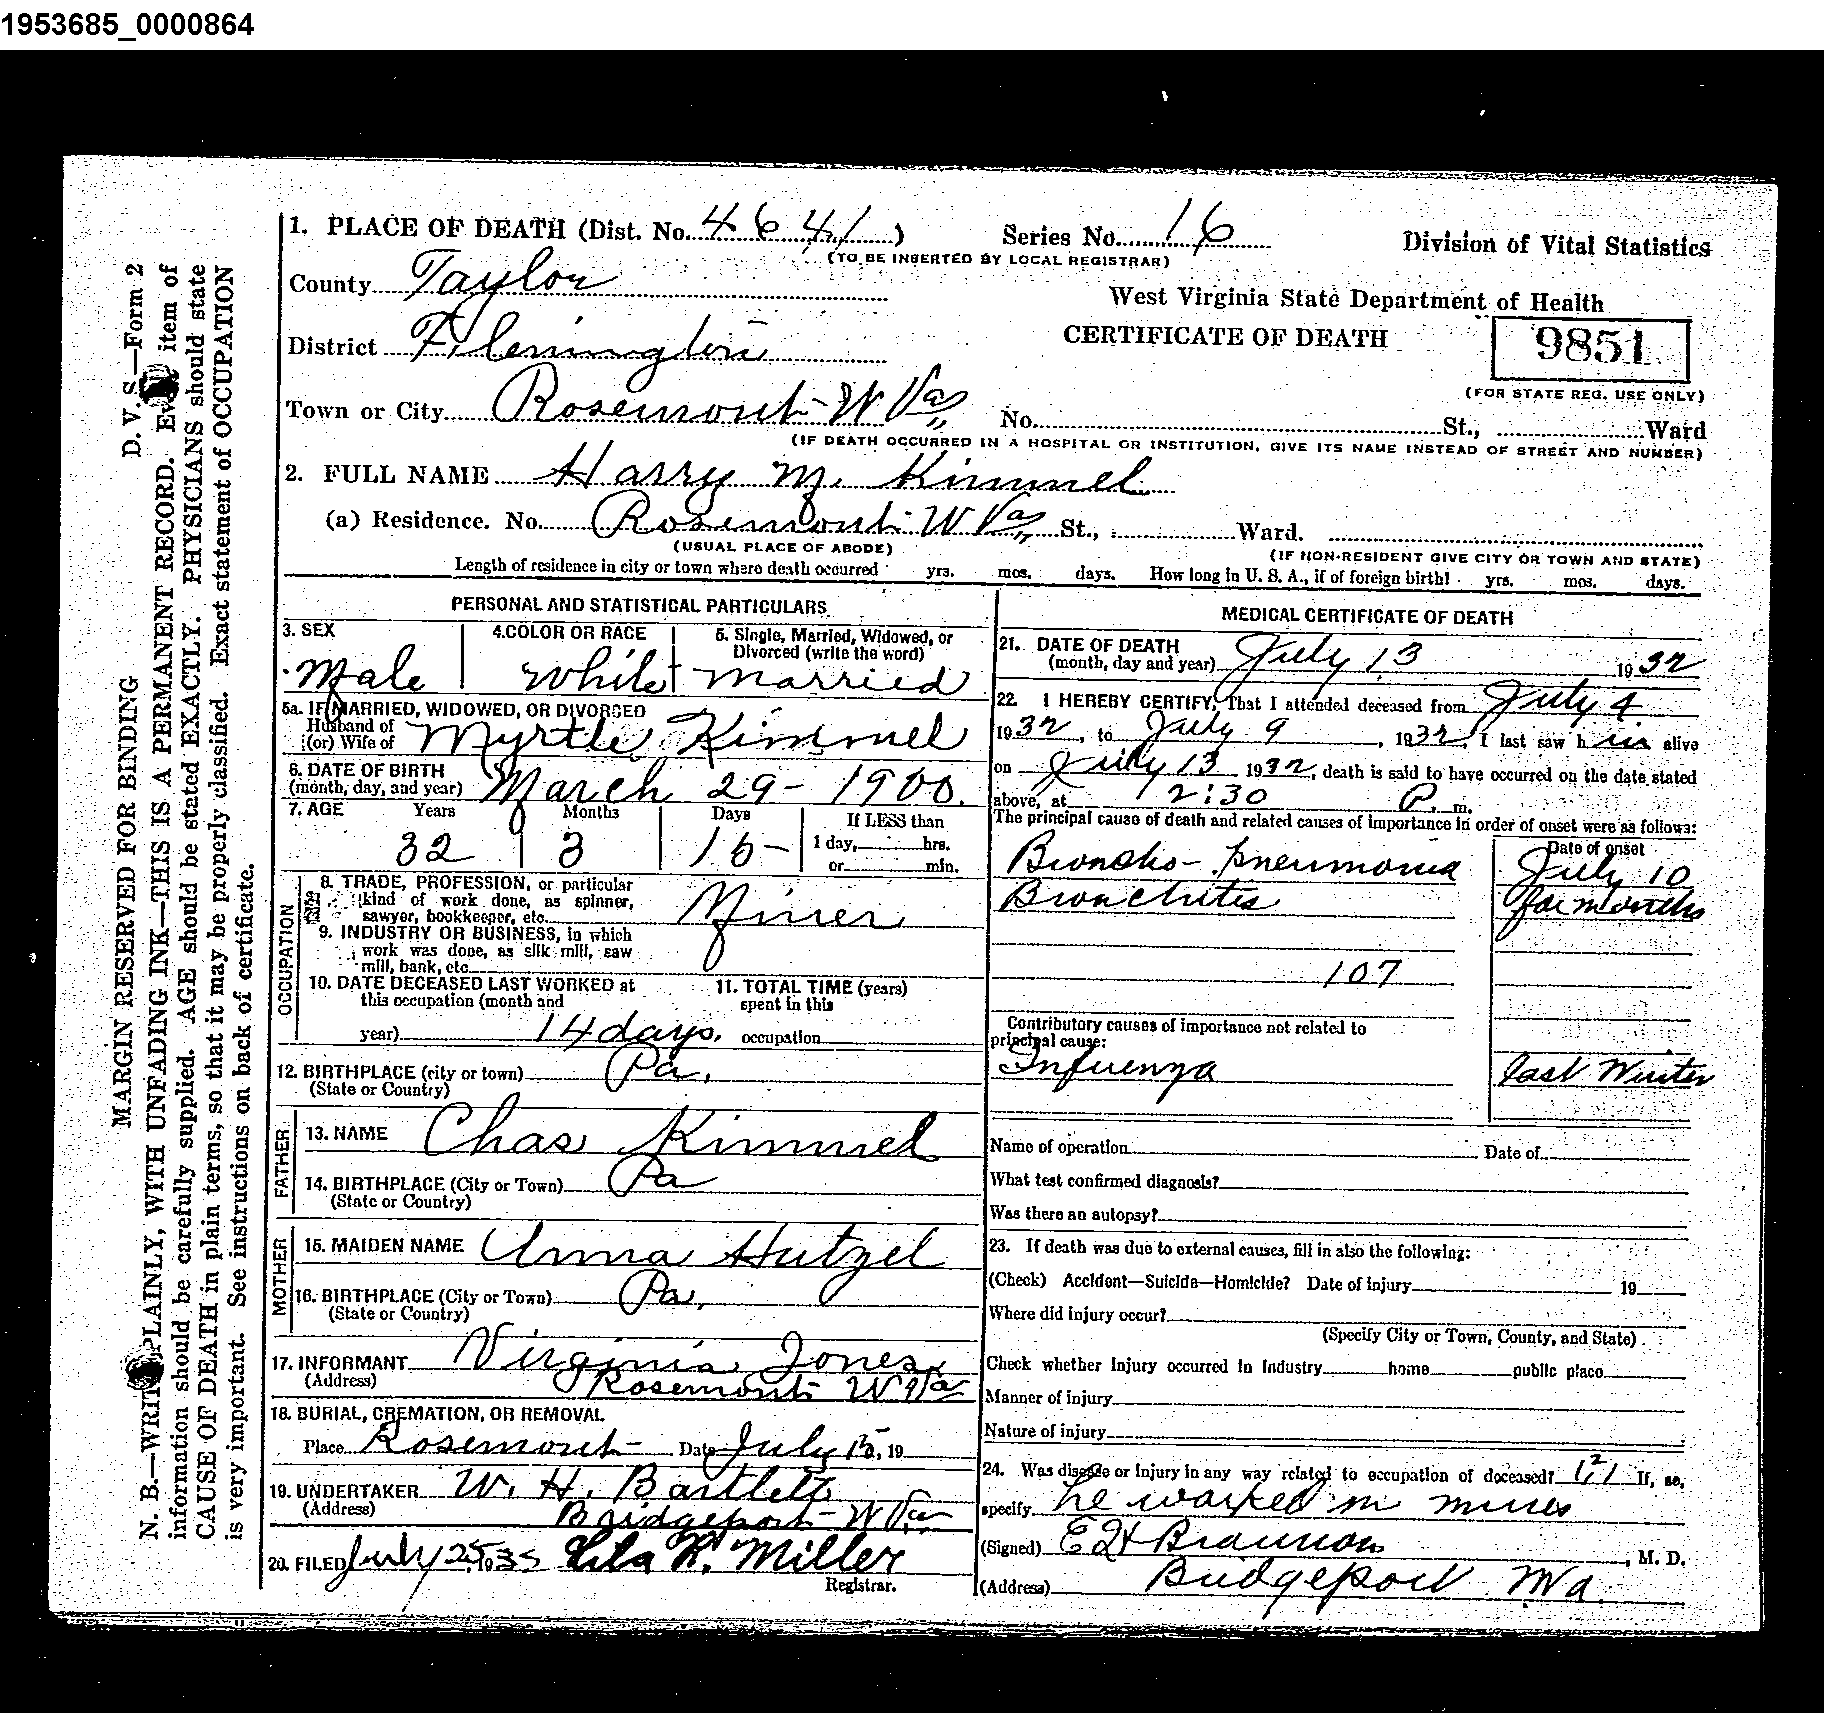 1953685_0000864
1. PLACE OF DEATH (Dist. No. 4641) Series No. 16 Division of Vital Statistics
(TO BE INSERTED BY LOCAL REGISTRAR)
County Taylor
West Virginia State Department of Health
District Flemington CERTIFICATE OF DEATH 9851
(FOR STATE REG. USE ONLY)
Town or City Rosemont W Va, No. St., Ward
(IF DEATH OCCURRED IN A HOSPITAL OR INSTITUTION, GIVE ITS NAME INSTEAD OF STREET AND NUMBER)
2. FULL NAME Harry M. Kimmel
(a) Residence. No. Rosemont W Va, St., Ward.
(USUAL PLACE OF ABODE) (IF NON-RESIDENT GIVE CITY OR TOWN AND STATE)
Length of residence in city or town where death occurred yrs. mos. days. How long in U. S. A., if of foreign birth? yrs. mos. days.
PERSONAL AND STATISTICAL PARTICULARS
3. SEX 4. COLOR OR RACE 5. Single, Married, Widowed, or
Divorced (write the word)
Male White Married
5a. IF MARRIED, WIDOWED, OR DIVORCED
Husband of
(or) Wife of Myrtle Kimmel
6. DATE OF BIRTH
(month, day, and year) March 29- 1900.
7. AGE Years Months Days If LESS than
32 3 15- 1 day, hrs.
or min.
OCCUPATION
8. TRADE, PROFESSION, or particular
kind of work done, as spinner,
sawyer, bookkeeper, etc. Miner
9. INDUSTRY OR BUSINESS, in which
work was done, as silk mill, saw
mill, bank, etc.
10. DATE DECEASED LAST WORKED at
this occupation (month and
year) 14 days.
11. TOTAL TIME (years)
spent in this
occupation
12. BIRTHPLACE (city or town) Pa.
(State or Country)
FATHER
13. NAME Chas Kimmel
14. BIRTHPLACE (City or Town) Pa
(State or Country)
MOTHER
15. MAIDEN NAME Anna Hutzel
16. BIRTHPLACE (City or Town) Pa.
(State or Country)
17. INFORMANT Virginia Jones,
(Address) Rosemont W Va
18. BURIAL, CREMATION, OR REMOVAL
Place Rosemont Date July 15, 19
19. UNDERTAKER W. H. Bartlett
(Address) Bridgeport W Va
20. FILED July 25, 193 Lila R. Miller
Registrar.
MEDICAL CERTIFICATE OF DEATH
21. DATE OF DEATH
(month, day and year) July 13 1932
22. I HEREBY CERTIFY, That I attended deceased from July 4
1932, to July 9, 1932, I last saw him alive
on July 13 1932, death is said to have occurred on the date stated
above, at 2:30 P. m.
The principal cause of death and related causes of importance in order of onset were as follows:
Date of onset
Broncho-pneumonia July 10
Bronchitis for months
107
Contributory causes of importance not related to
principal cause:
Influenza last Winter
Name of operation Date of
What test confirmed diagnosis?
Was there an autopsy?
23. If death was due to external causes, fill in also the following:
(Check) Accident—Suicide—Homicide? Date of injury 19
Where did injury occur?
(Specify City or Town, County, and State)
Check whether injury occurred in industry home public place
Manner of injury
Nature of injury
24. Was disease or injury in any way related to occupation of deceased? If, so,
specify he worked in mines
(Signed) , M. D.
(Address) Bridgeport
MARGIN RESERVED FOR BINDING D. V. S.—Form 2
N. B.—WRITE PLAINLY, WITH UNFADING INK—THIS IS A PERMANENT RECORD. Every item of
information should be carefully supplied. AGE should be stated EXACTLY. PHYSICIANS should state
CAUSE OF DEATH in plain terms, so that it may be properly classified. Exact statement of OCCUPATION
is very important. See instructions on back of certificate.